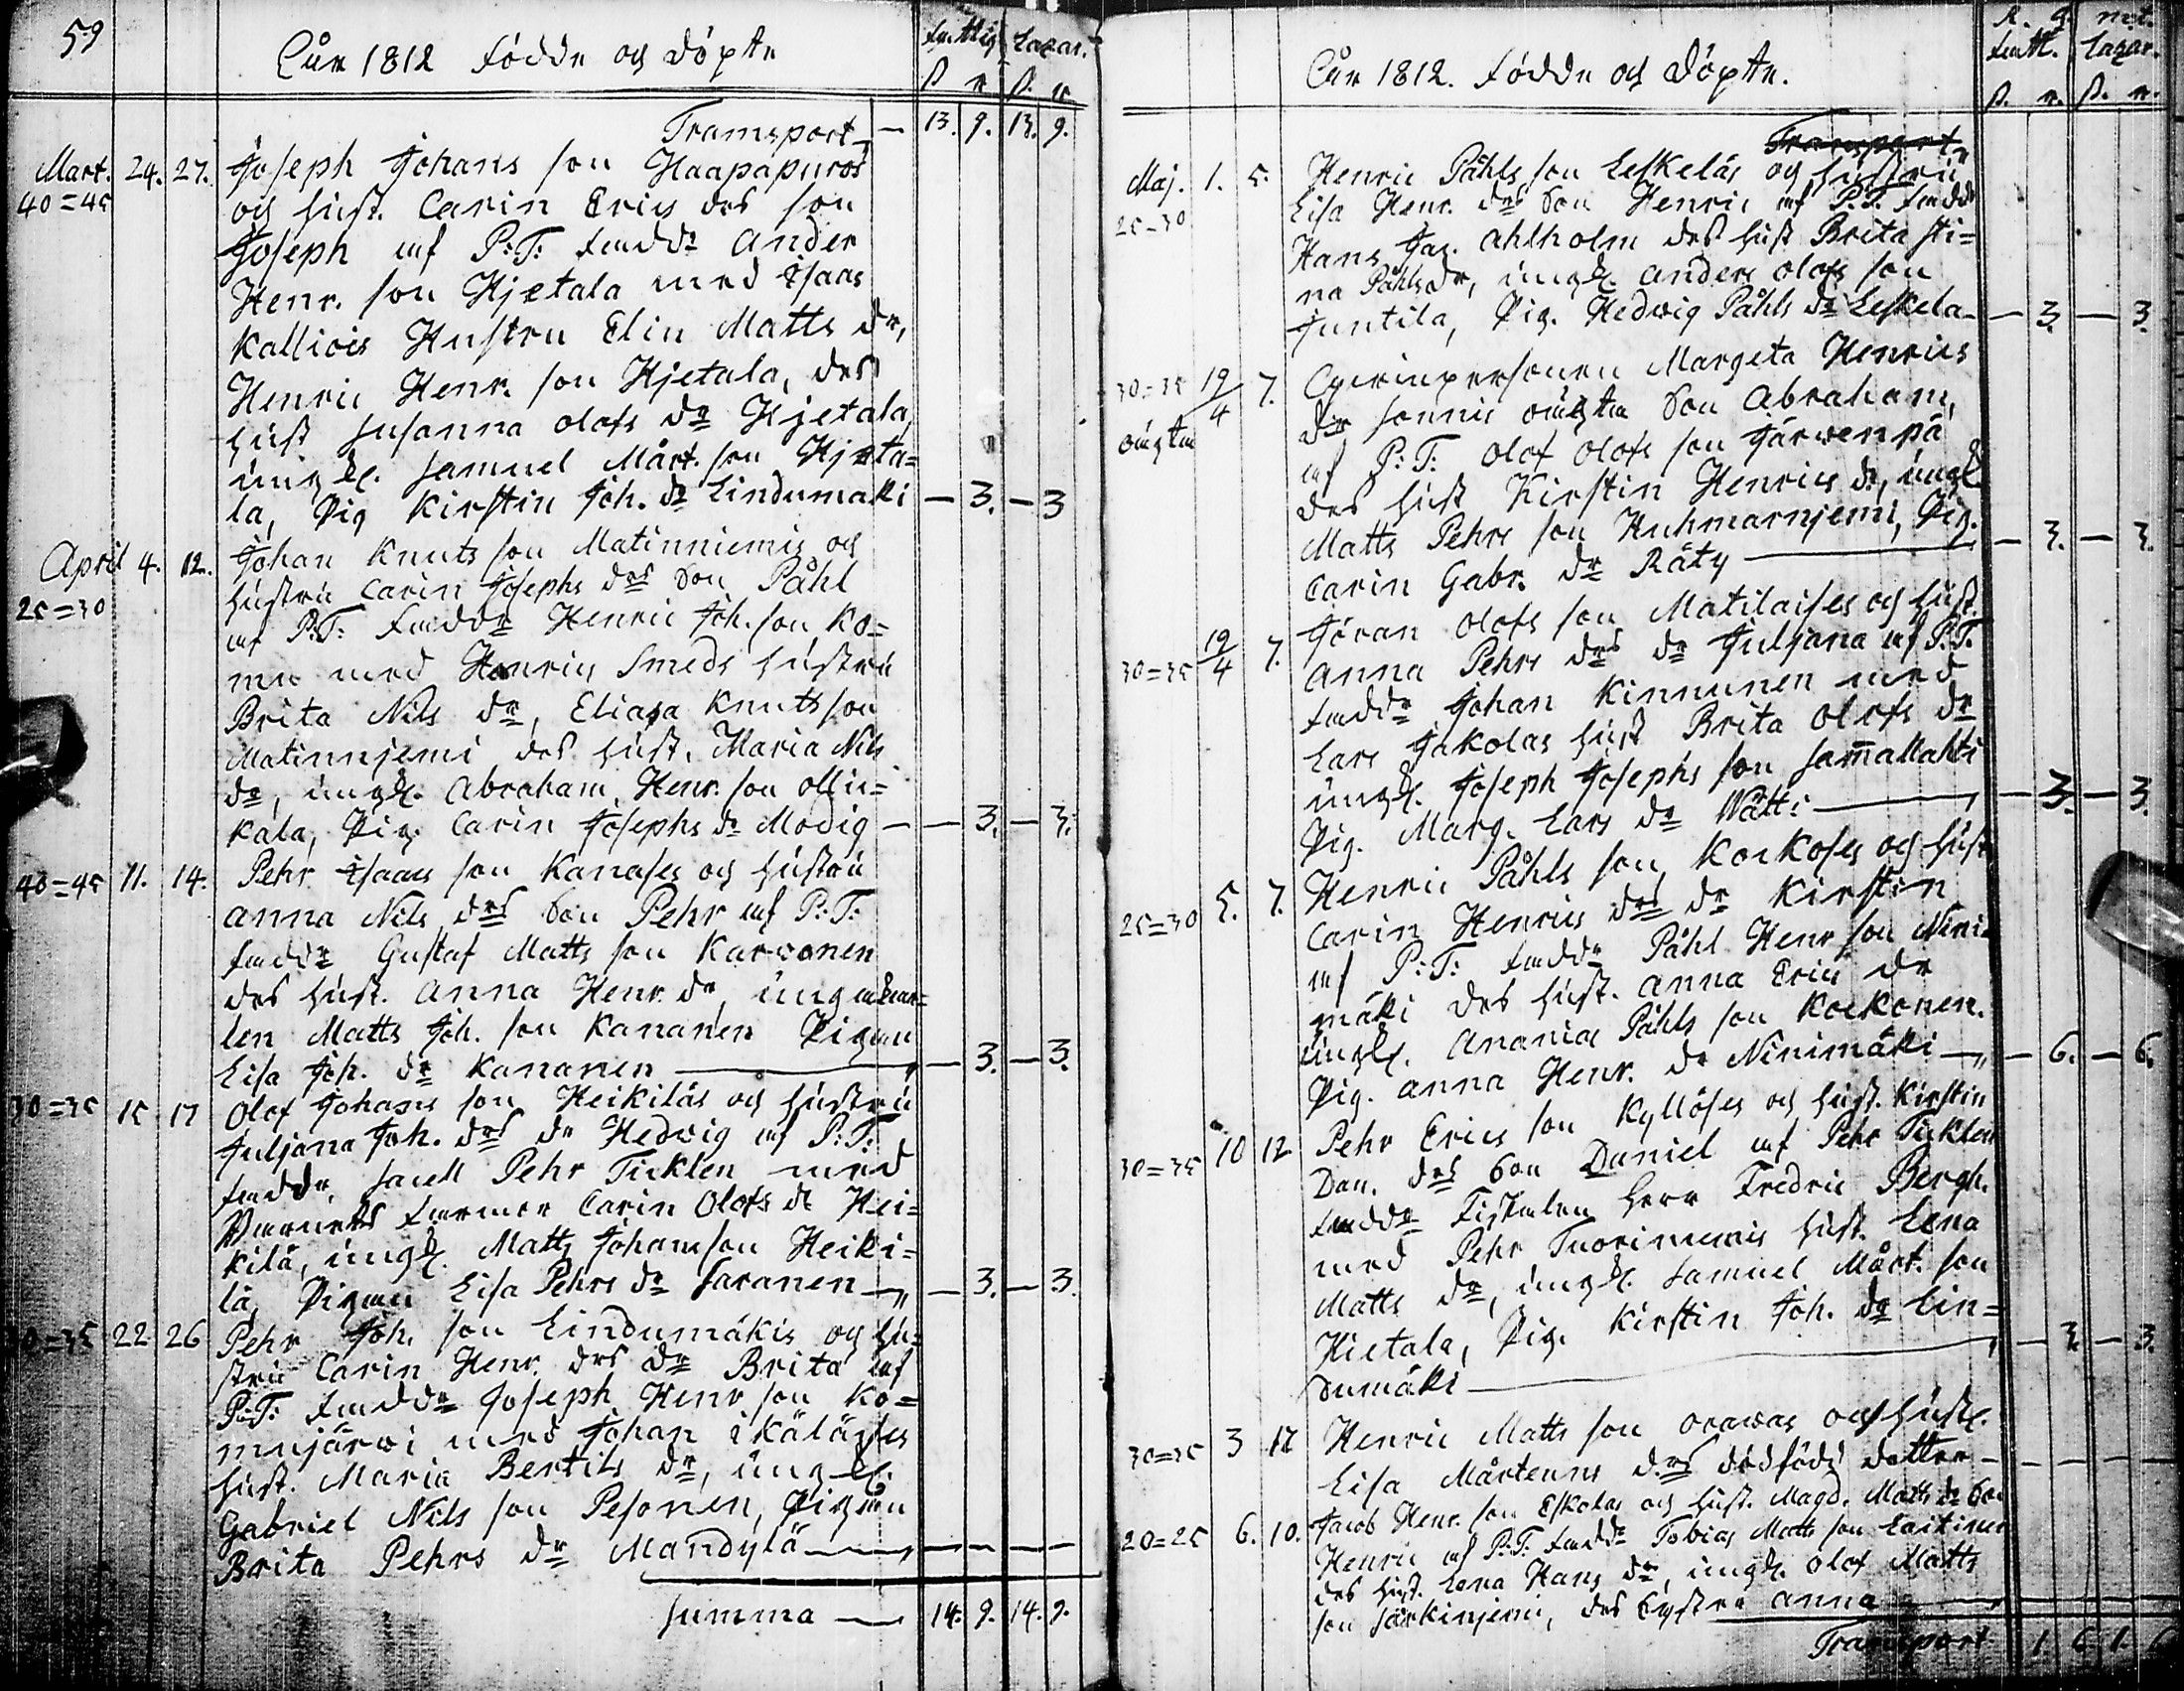 59
Åhr 1812 födde och döpte
Fattig Lazar.
ß r ß. r.
Transport — 13. 9. 13. 9.
Mart. 24. 27. Joseph Johans son Haapapuros
40=45 och hust. Carin Erics dr son
Joseph af P:T: faddr Ander
Henr. son Hjetala med Isaac
Kallios Hustru Elin Matts dr,
Henric Henr. son Hjetala, des
hust Susanna Olofs dr Hjetala
ungk. Samuel Mårt. son Hjeta=
la, Pig Kirstin Joh. dr Lindumäki — 3. — 3
April 4. 12. Johan Knuts son Matinniemis och
25=30 hustru Carin Josephs drs son Påhl
af P:T: faddr Henric Joh. son Ko=
mu med Henrics Smeds hustru
Brita Nils dr, Eliasa Knuts son
Matinnjemi des hust. Maria Nils
dr, ungk. Abraham Henr. son Olli=
kala, Pig. Carin Josephs dr Modig — — 3. — 3.
40=45 11. 14. Pehr Isaacs son Kanases och hustru
Anna Nils drs son Pehr af P:T:
faddr Gustaf Matts son Karvonen
des hust. Anna Henr. dr ungkar=
len Matts Joh. son Kananen Pigan
Lisa Joh. dr Kananen — — 3. — 3.
30=35 15 17 Olof Johans son Heikiläs och hustru
Juljana Joh. drs dr Hedvig af P:T:
faddr, Pehr Ticklen med
Barnets farmor Carin Olofs dr Hei=
kilä, ungk. Matts Johansson Heiki=
lä, Pigan Lisa Pehrs dr Saranen — — 3. — 3.
30=35 22 26 Pehr Joh. son Lindumäkis och hu=
stru Carin Henr. drs dr Brita af
P:T: faddr Joseph Henr son Ko=
mujärwi med Johan Ikäläises
hust. Maria Bertils dr, ungk.
Gabriel Nils son Pesonen, Pigan
Brita Pehrs dr Mandylä — — — — —
Summa — 14. 9. 14. 9.
Åhr 1812. födde och döpte.
fatt. Lazar.
ß. r. ß. r.
Transport
Maj. 1. 5. Henric Påhls son Leskeläs och hustru
25=30 Lisa Henr. drs son Henric af P:T. faddr
Hans Jac. Ahlholm des hust Brita Sti=
na Påhlsdr, ungk. Anders Olofs son
Juntila, Pig. Hedvig Påhls dr Leskela — 3. — 3.
30=35 19/4 7. Qvinspersonen Margeta Henrics
oägta dr Sonnis oägta son Abraham,
af P:T: Olof Olofs son Järwenpä
des hust Kirstin Henrics dr, ungk
Matts Pehrs son Huhmarnjemi, Pig.
Carin Gabr. dr Räty — — 3. — 3.
30=35 19/4 7. Jöran Olofs son Matilaises och hust.
Anna Pehrs drs dr Juljana af P:T.
faddr Johan Kinnunen med
Lars Jakolas hust Brita Olofs dr
ungk. Joseph Josephs son Sammallahti
Pig. Marg. Lars dr Wätti — — 3. — 3.
25=30 5. 7. Henric Påhls son Korkoses och hust
Carin Henrics drs dr Kirstin
af P:T: faddr Påhl Henr son Nini=
mäki des hust. Anna Erics dr
ungk. Anania Påhls son Korkonen.
Pig. Anna Henr. dr Ninimäki — — 6. — 6.
30=35 10 12 Pehr Erics son Kyllöses och hust. Kirstin
Dan. drs son Daniel af Pehr Ticklen
faddr Fiskalen Herr Fredric Bergh.
med Pehr Tuoriniemis hust. Lena
Matts dr, ungk. Samuel Mårt. son
Hietala, Pig. Kirstin Joh. dr Lin=
dumäki — — 3. — 3.
30=35 3 17 Henric Matts son Orawas och hust.
Lisa Mårtens drs dödfödd dotter — — — —
20=25 6. 10. Jacob Henr. son Eskolas och hust. Magd. Matts dr son
Henric af P:T. faddr Tobias Matts son Laitinen
des hust. Lena Hans dr, ungk. Olof Matts
son Särkinjemi, des Syster Anna —
Transport 1. 6. 1. 6